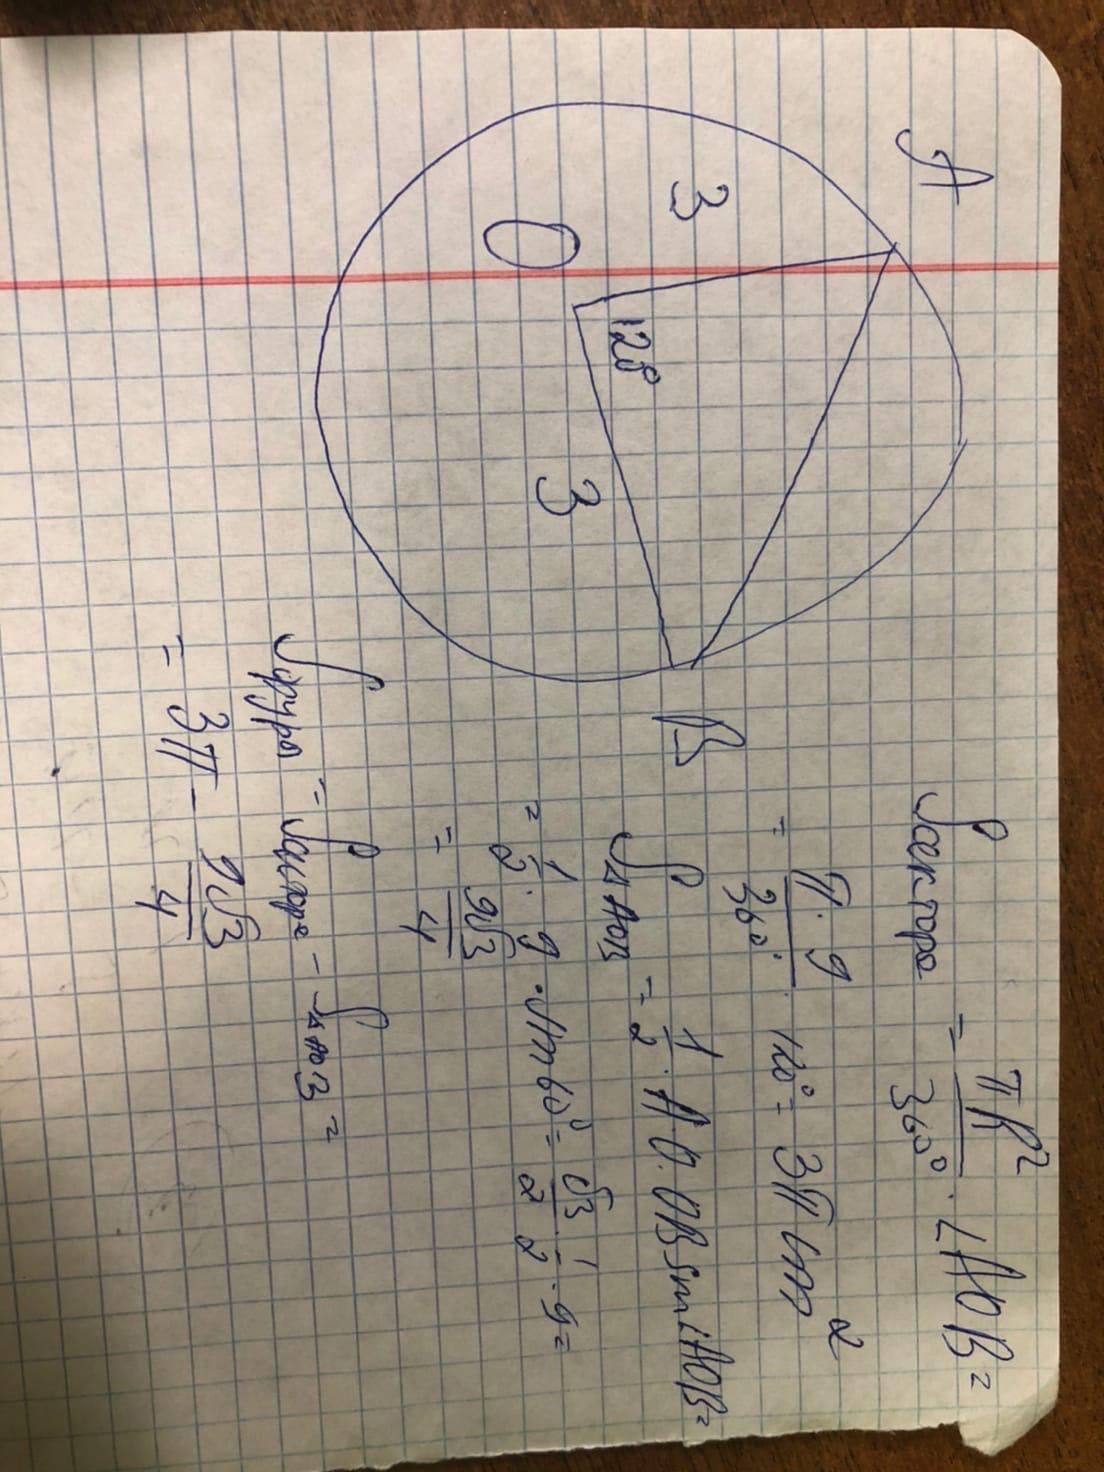 A
3
O
120°
3
B
Sсектора = πR²/360° · ∠AOB =
= π·9/360° · 120° = 3π см²
S△AOB = 1/2 · AO · OB sin∠AOB =
= 1/2 · 9 · sin60° = √3/2 · 1/2 · 9 =
= 9√3/4
Sфигуры = Sсектора - S△AOB =
= 3π - 9√3/4